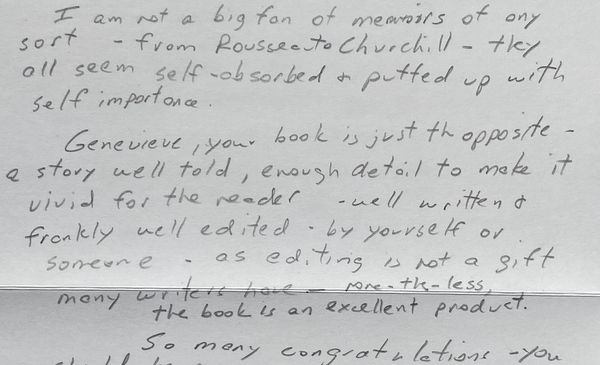 I am not a big fan of memoirs of any
sort - from Rousseau to Churchill - they
all seem self-absorbed & puffed up with
self importance.
Genevieve, your book is just th opposite -
a story well told, enough detail to make it
vivid for the reader - well written &
frankly well edited - by yourself or
someone - as editing is not a gift
many writers have - none-the-less,
the book is an excellent product.
So many congratulations - you